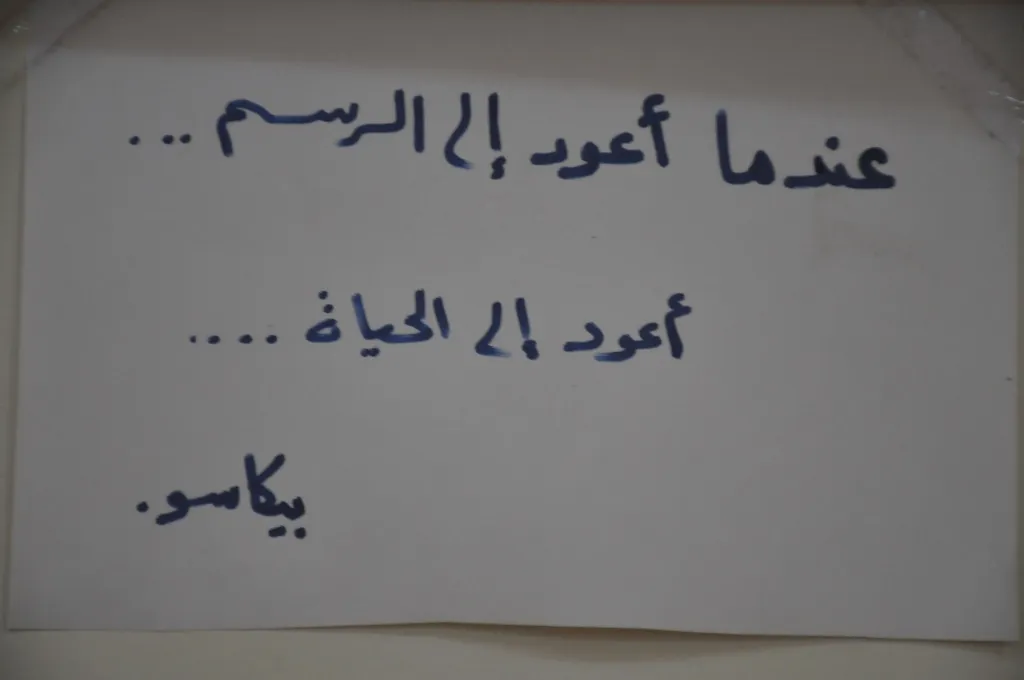 عندما أعود إلى الرسم ...
أعود إلى الحياة ....
بيكاسو.